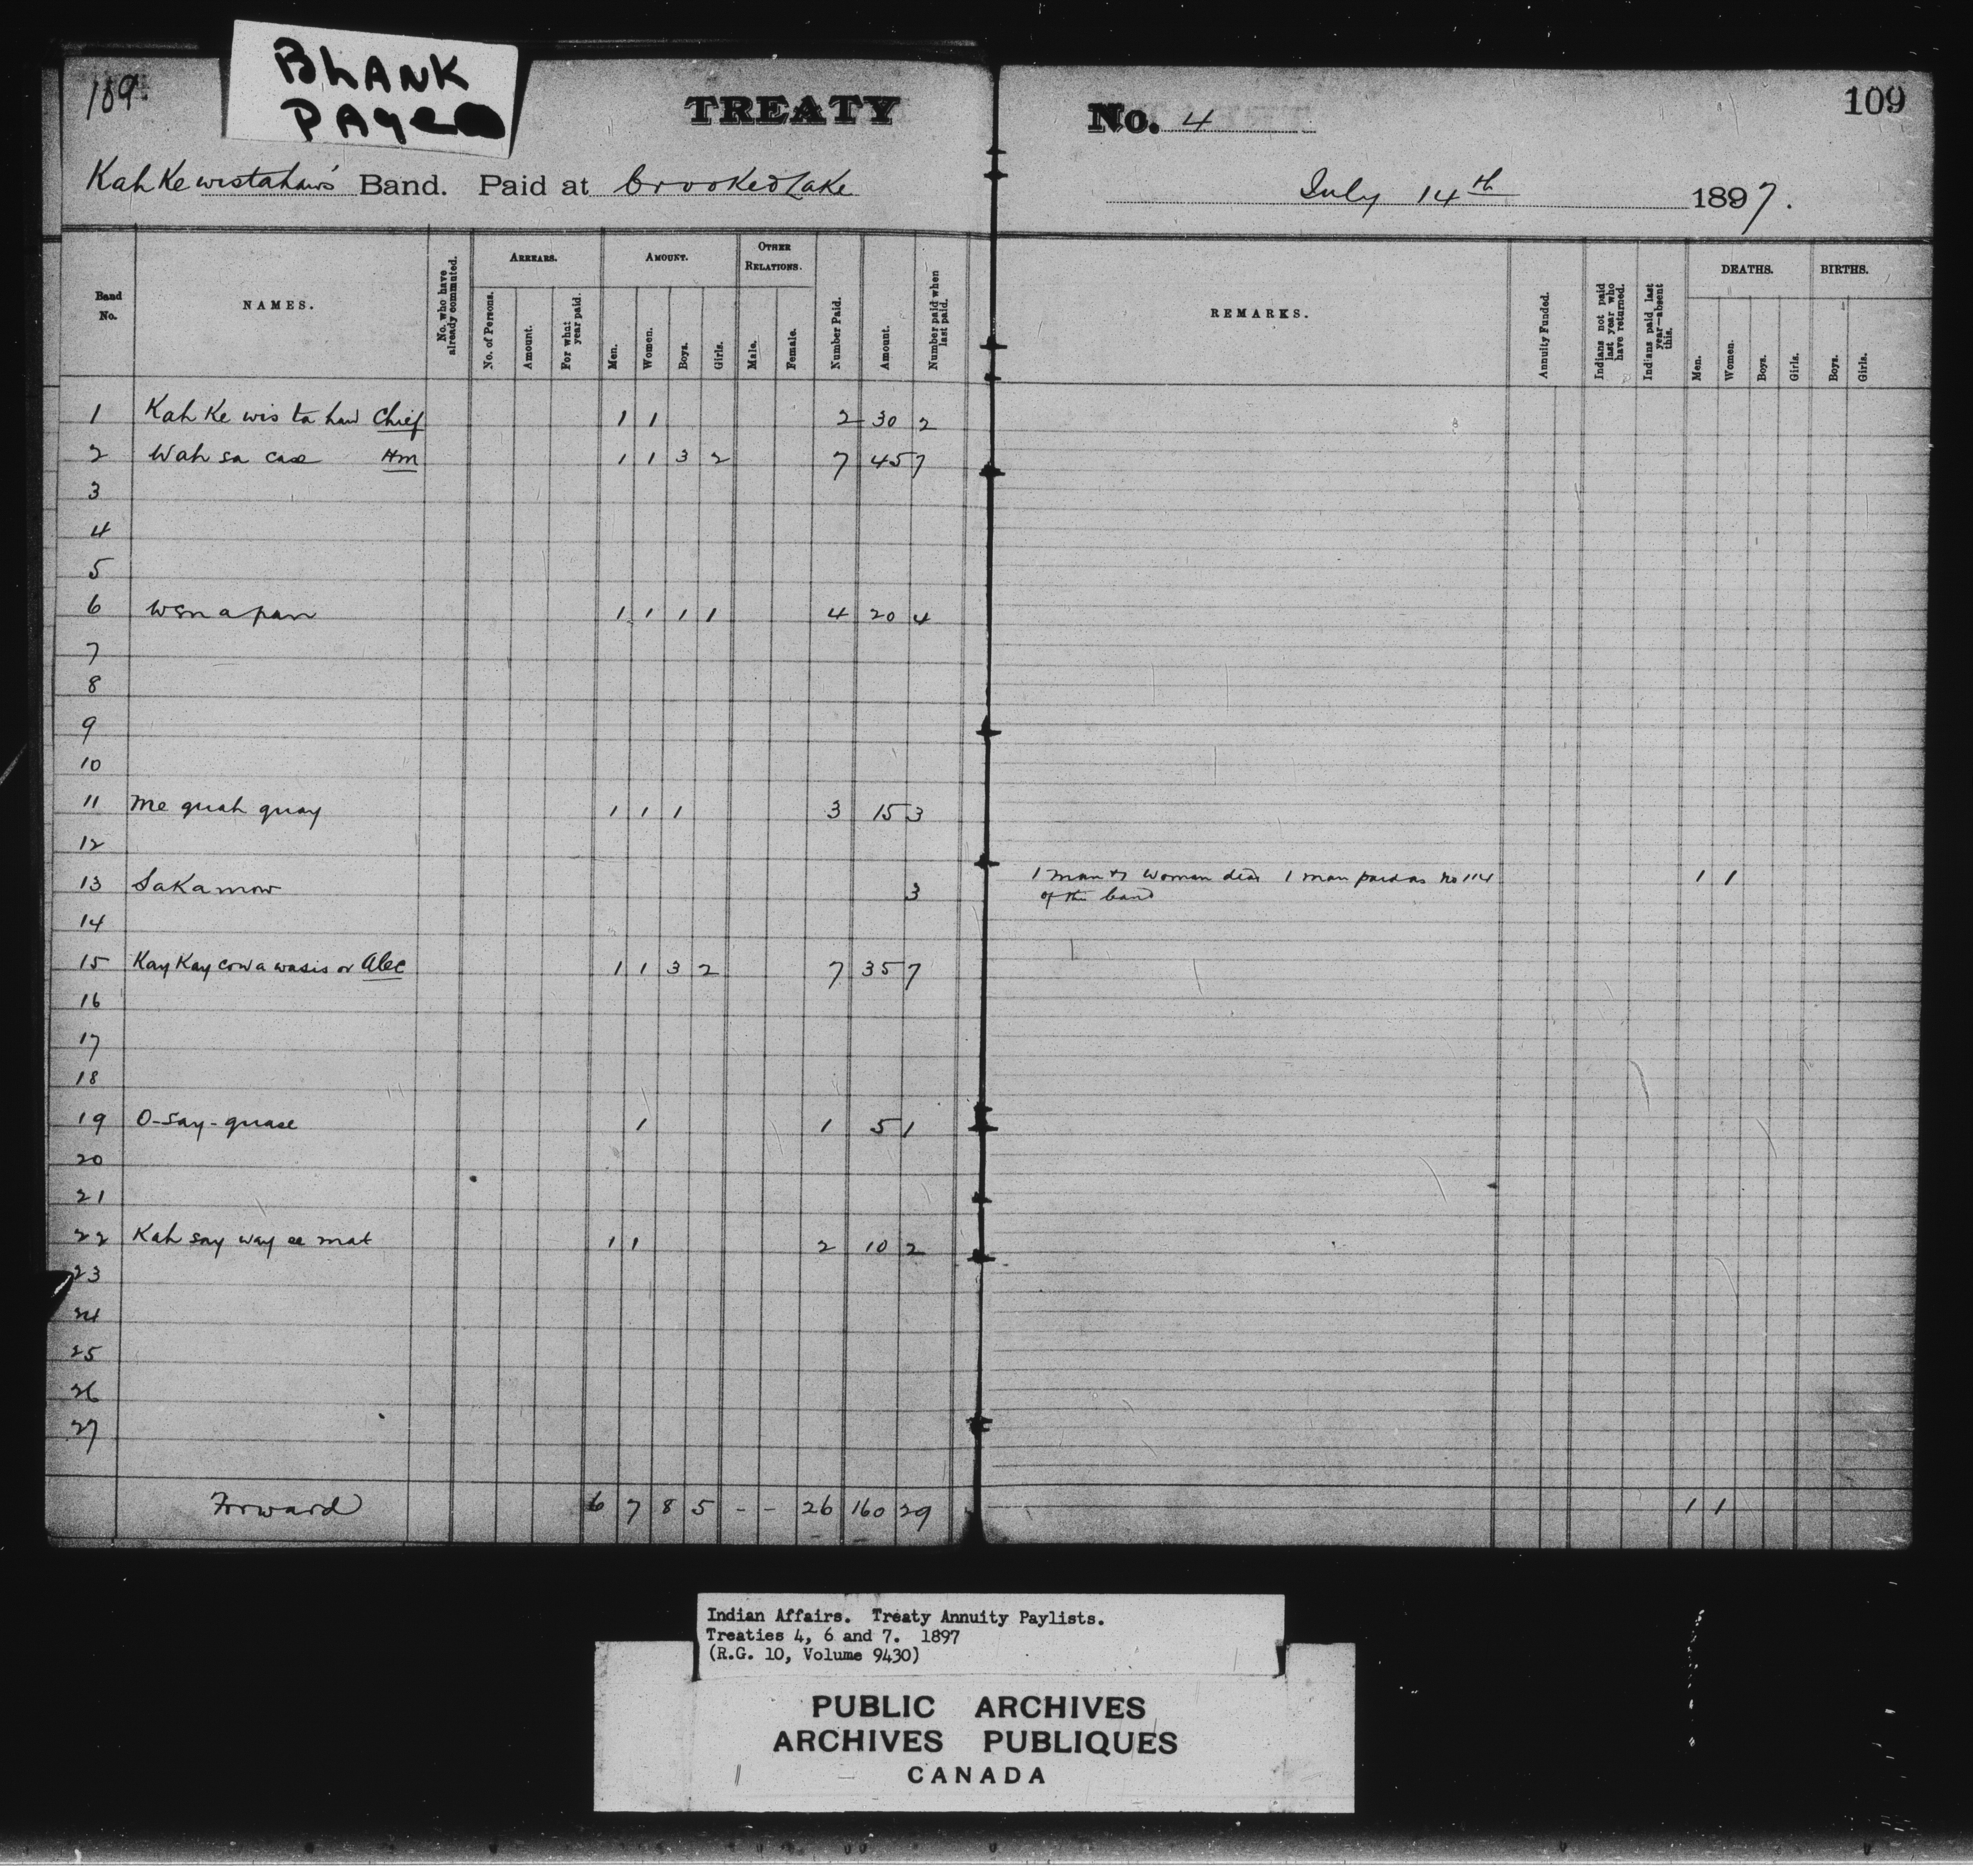 BLANK
PAGE
189
TREATY No. 4
109
KahKewistahaw's Band. Paid at Crooked Lake July 14th 1897.
Band No.
NAMES.
No. who have already commuted.
ARREARS.
No. of Persons.
Amount.
For what year paid.
AMOUNT.
Men.
Women.
Boys.
Girls.
OTHER RELATIONS.
Male.
Female.
Number Paid.
Amount.
Number paid when last paid.
REMARKS.
Annuity Funded.
Indians not paid last year who have returned.
Indians paid last year—absent this.
DEATHS.
Men.
Women.
Boys.
Girls.
BIRTHS.
Boys.
Girls.
1 Kah Ke wis ta haw Chief 1 1 2 30 2
2 Wah sa case Hm 1 1 3 2 7 45 7
3
4
5
6 Wenapan 1 1 1 1 4 20 4
7
8
9
10
11 Me quah quay 1 1 1 3 15 3
12
13 Sakamow 3 1 man & 1 woman dead 1 man paid as No 114 1 1
of the band
14
15 Kay Kay cow a wasis or Alec 1 1 3 2 7 35 7
16
17
18
19 O-say-quase 1 1 5 1
20
21
22 Kah say way ee mat 1 1 2 10 2
23
24
25
26
27
Forward 6 7 8 5 - - 26 160 29 1 1
Indian Affairs. Treaty Annuity Paylists.
Treaties 4, 6 and 7. 1897
(R.G. 10, Volume 9430)
PUBLIC ARCHIVES
ARCHIVES PUBLIQUES
CANADA